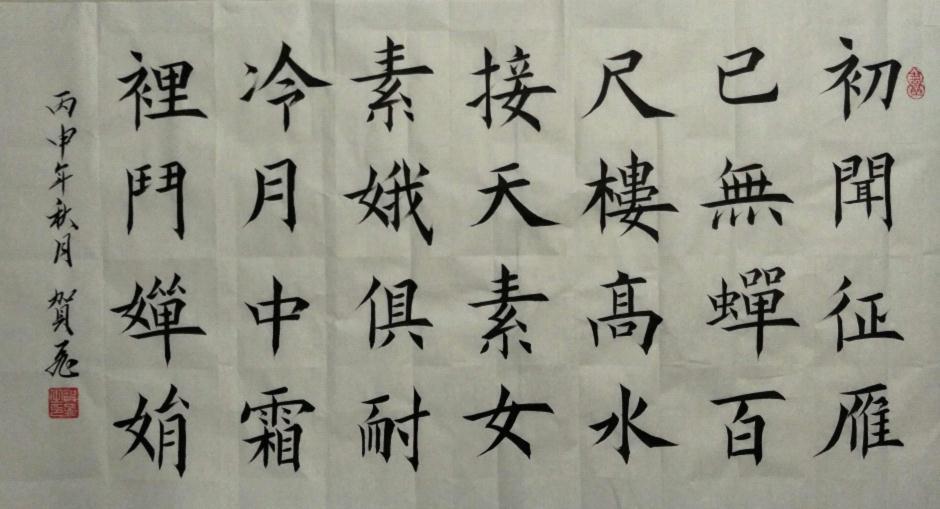 初聞征雁
已無蟬百
尺樓高水
接天素女
素娥俱耐
冷月中霜
裡鬥嬋娟
丙申年秋月 賀